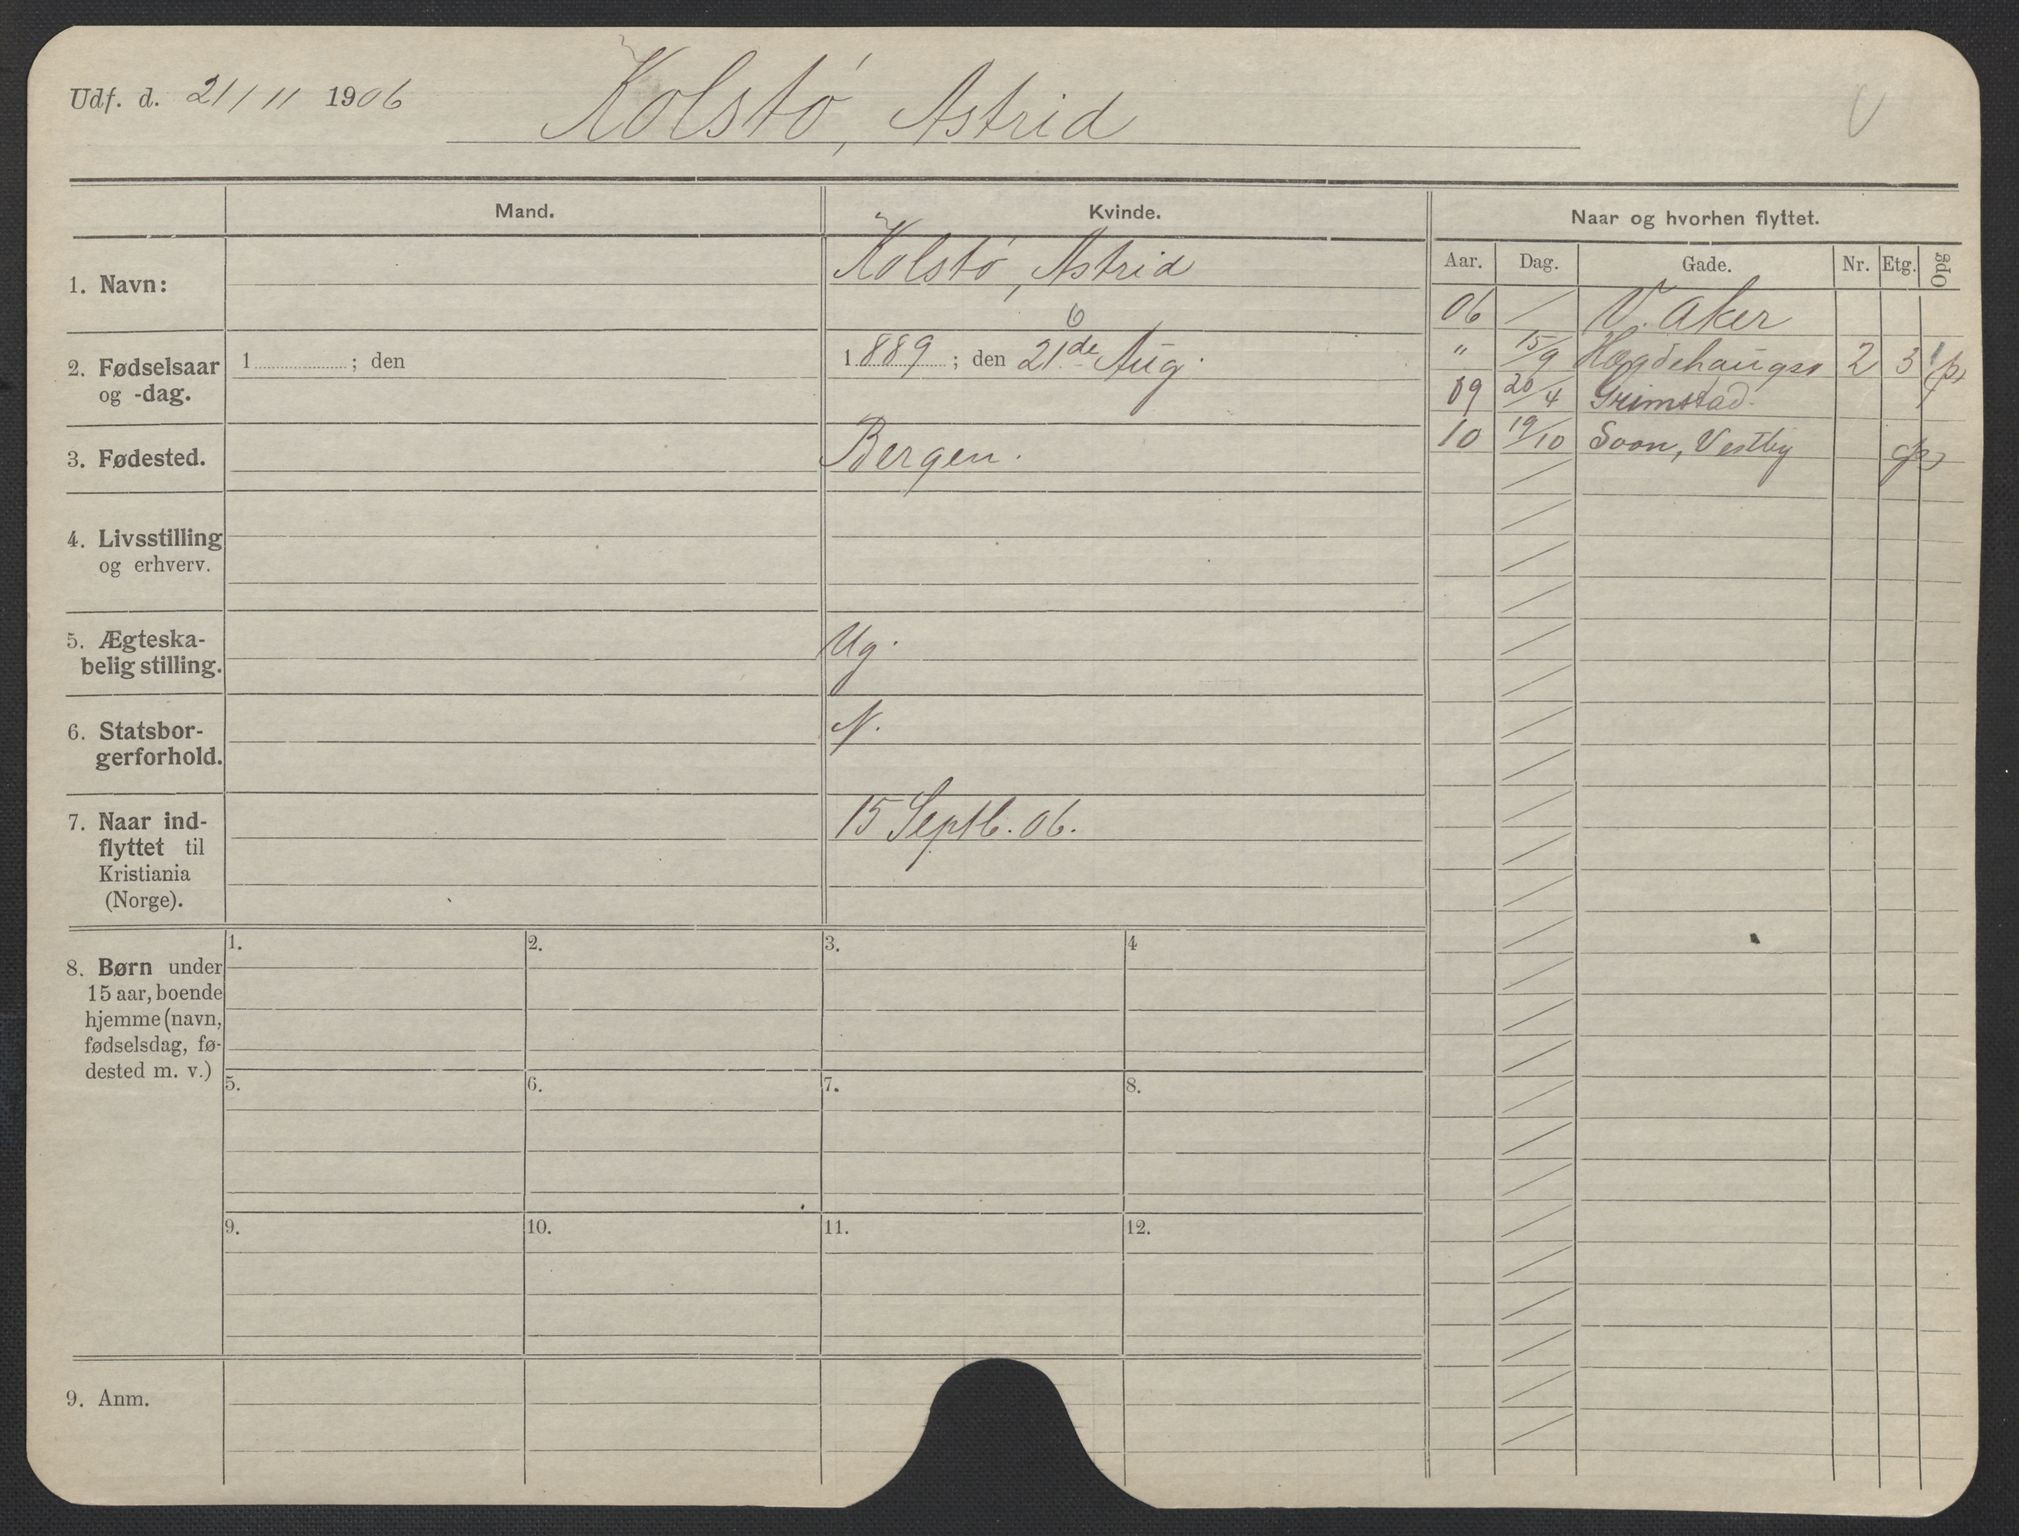 Udf. d. 21/11 1906 Kolstø, Astrid
Mand. Kvinde. Naar og hvorhen flyttet.
Aar. Dag. Gade. Nr. Etg. Opg
1. Navn: Kolstø, Astrid
06 V. Aker
" 15/9 Hægdehaugsv 2 3
09 20/4 Grimstad
10 19/10 Soon, Vestby
2. Fødselsaar
og -dag.
1 ; den
1889 ; den 21de Aug.
3. Fødested. Bergen.
4. Livsstilling
og erhverv.
5. Ægteska-
belig stilling. Ug.
6. Statsbor-
gerforhold. N.
7. Naar ind-
flyttet til
Kristiania
(Norge).
15 Septb. 06.
8. Børn under
15 aar, boende
hjemme (navn,
fødselsdag, fø-
dested m. v.)
1. 2. 3. 4
5. 6. 7. 8.
9. 10. 11. 12.
9. Anm.